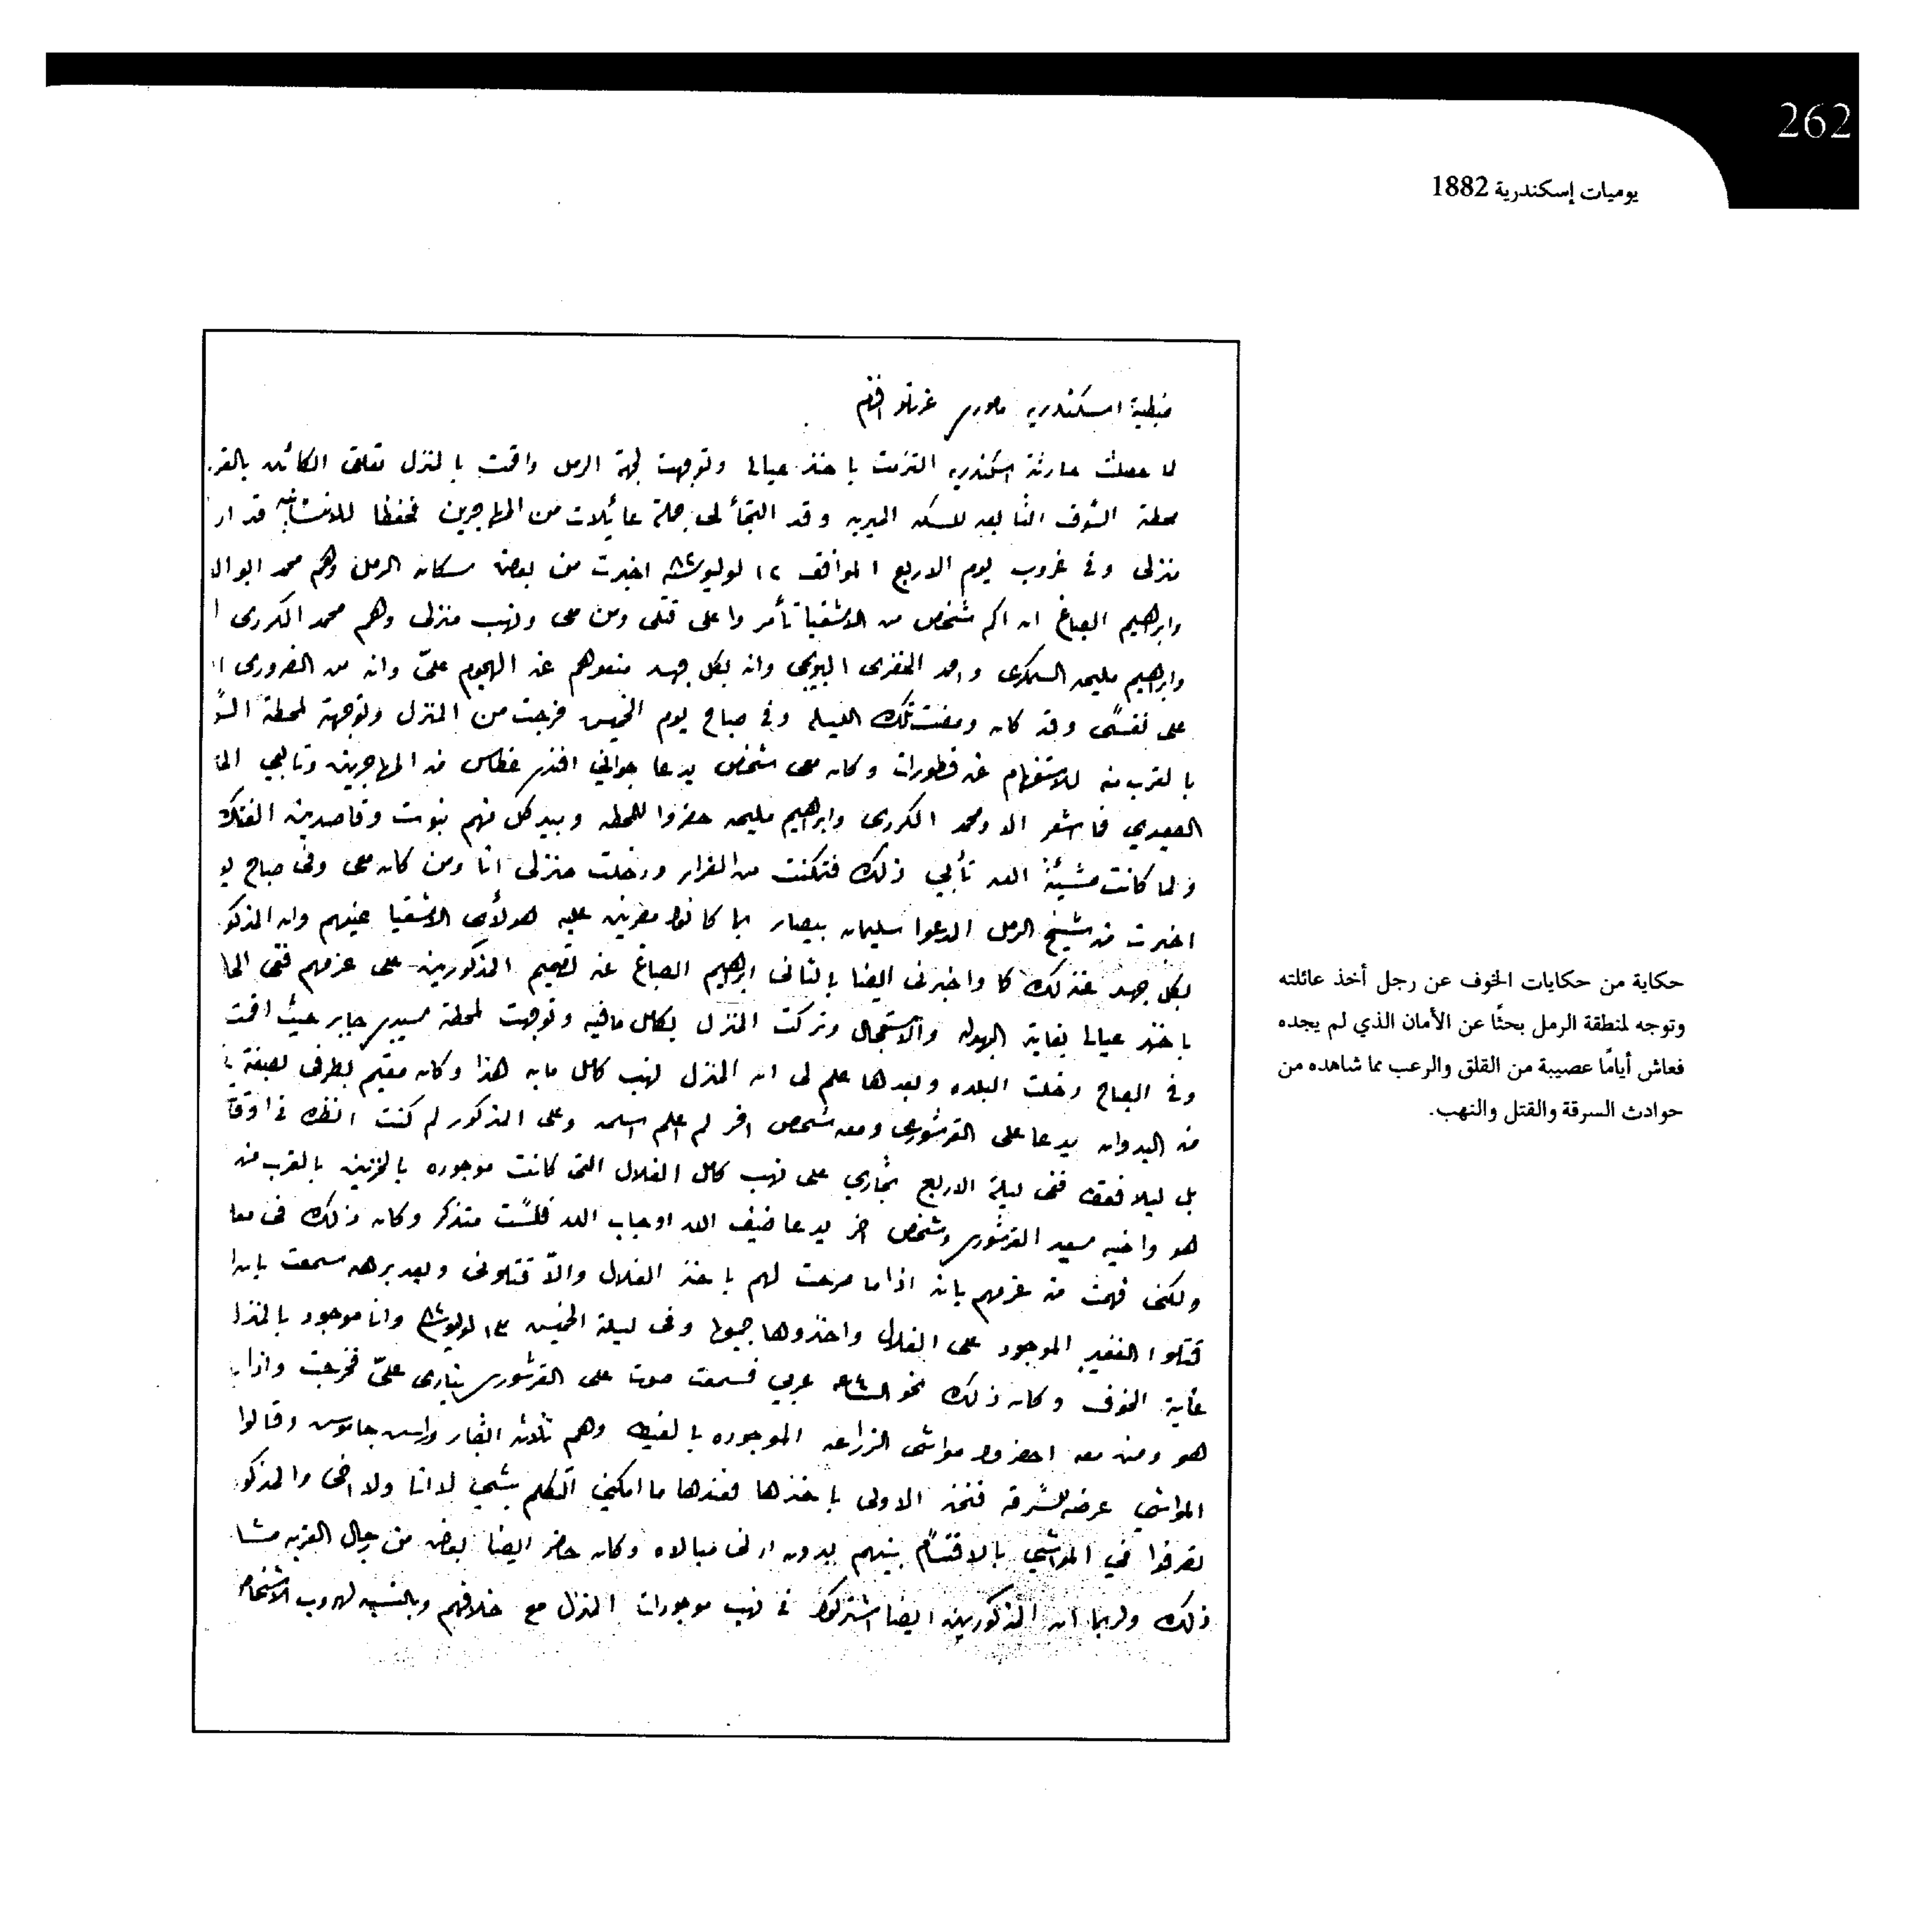 262
يوميات إسكندرية 1882
ضبطية اسكندريه مامورى عزتلو افندم
لما حصلت حادثة اسكندريه التزمت باخذ عيالى وتوجهت لجهة الرمل واقمت بالمنزل تعلقى الكائن بالقر
محطة الشوف التابعه للسكه الميريه وقد التجأ لى جملة عائيلات من المهاجرين تحفظا للانسانيه قد ار
منزلى وفى غروب يوم الاربع الموافق ١٢ لوليو سنة ٨٢ اخبرت من بعض سكان الرمل وهم محمد ابو ال
وابرهيم الصباغ ان اكم شخص من الاشقيا تأمروا على قتلى ومن معى ونهب منزلى وهم محمد الكردى ا
وابرهيم مليحه السمكرى واحمد الخضرى البويجى وانه بكل جهد منعوهم عن الهجوم علىّ وانه من الضرورى ا
على نفسى وقد كان ومضت تلك الليله وفى صباح يوم الخميس خرجت من المنزل وتوجهة لمحطة الشو
بالقرب منه للاستفهام عن قطورات وكان معى شخص يدعا جوانى افندى غطاس من المهاجرين وتابعي الحا
الصعيدي فما اشعر الا ومحمد الكردى وابرهيم مليحه حضروا للمحطه وبيد كل منهم نبوت وقاصدين الفتك
ولما كانت مشيئة الله تأبي ذلك فتمكنت من الفرار ودخلت منزلى انا ومن كان معى وفى صباح يو
اخبرت من شيخ الرمل المدعوا سليمان بيصار بما كانوا مصرين عليه هولأى الاشقيا عنهم وان المذكو
بكل جهد عن ذلك كما واخبرنى ايضا بالثانى ابرهيم الصباغ عن تصميم المذكورين على عزمهم ففى الحا
باخذ عيالى بغاية البهدله والاستعجال وتركت المنزل بكامل مافيه وتوجهت لمحطة سيدى جابر حيث اقمت
وفى الصباح دخلت البلده وبعدها علم لى ان المنزل نهب كامل ما به هذا وكان مقيم بطرفى بصفة
من البدوان يدعا على القرشورى ومعه شخص اخر لم اعلم اسمه وعلى المذكور لم كنت انظره فى اوقا
بل ليلا فقط ففى ليلة الاربع تجارى على نهب كامل الغلال التى كانت موجوده بالمخزنين بالقرب من
هو واخيه سعيد القرشورى وشخص اخر يدعا ضيف الله او جاب الله فلست متذكر وكان ذلك فى معا
ولكنى فهمت من عزمهم بانه اذا ما صرحت لهم باخذ الغلال والاّ قتلونى وبعد برهه سمعت بانه ا
قتلوا الغفير الموجود على الغلال واخذوها جميعا وفى ليلة الخميس ١٣ لوليو سنة ٨٢ وانا موجود بالمنزل
غاية الخوف وكان ذلك نحو الساعه ٤ عربي فسمعت صوت على القرشورى ينادى علىّ فخرجت واذا
هو ومن معه احضروا مواشى الزراعه الموجوده بالغيط وهم ثلاثه ابقار وراس جاموس وقالوا
المواشى عرضه للسرقه فنحن الاولى باخذها فعندها ما امكنى اتكلم بشيئ لا انا ولا اخى والمذكو
تصرفوا في المواشي بالاقتسام بينهم بدون ادنى مبالاه وكان حاضر ايضا بعض من رجال العزبه مشا
ذلك ولربما ان المذكورين ايضا اشتركوا فى نهب موجودات المنزل مع خلافهم وبالنسبه لهروب الاشخاص
حكاية من حكايات الخوف عن رجل أخذ عائلته
وتوجه لمنطقة الرمل بحثًا عن الأمان الذي لم يجده
فعاش أيامًا عصيبة من القلق والرعب مما شاهده من
حوادث السرقة والقتل والنهب.